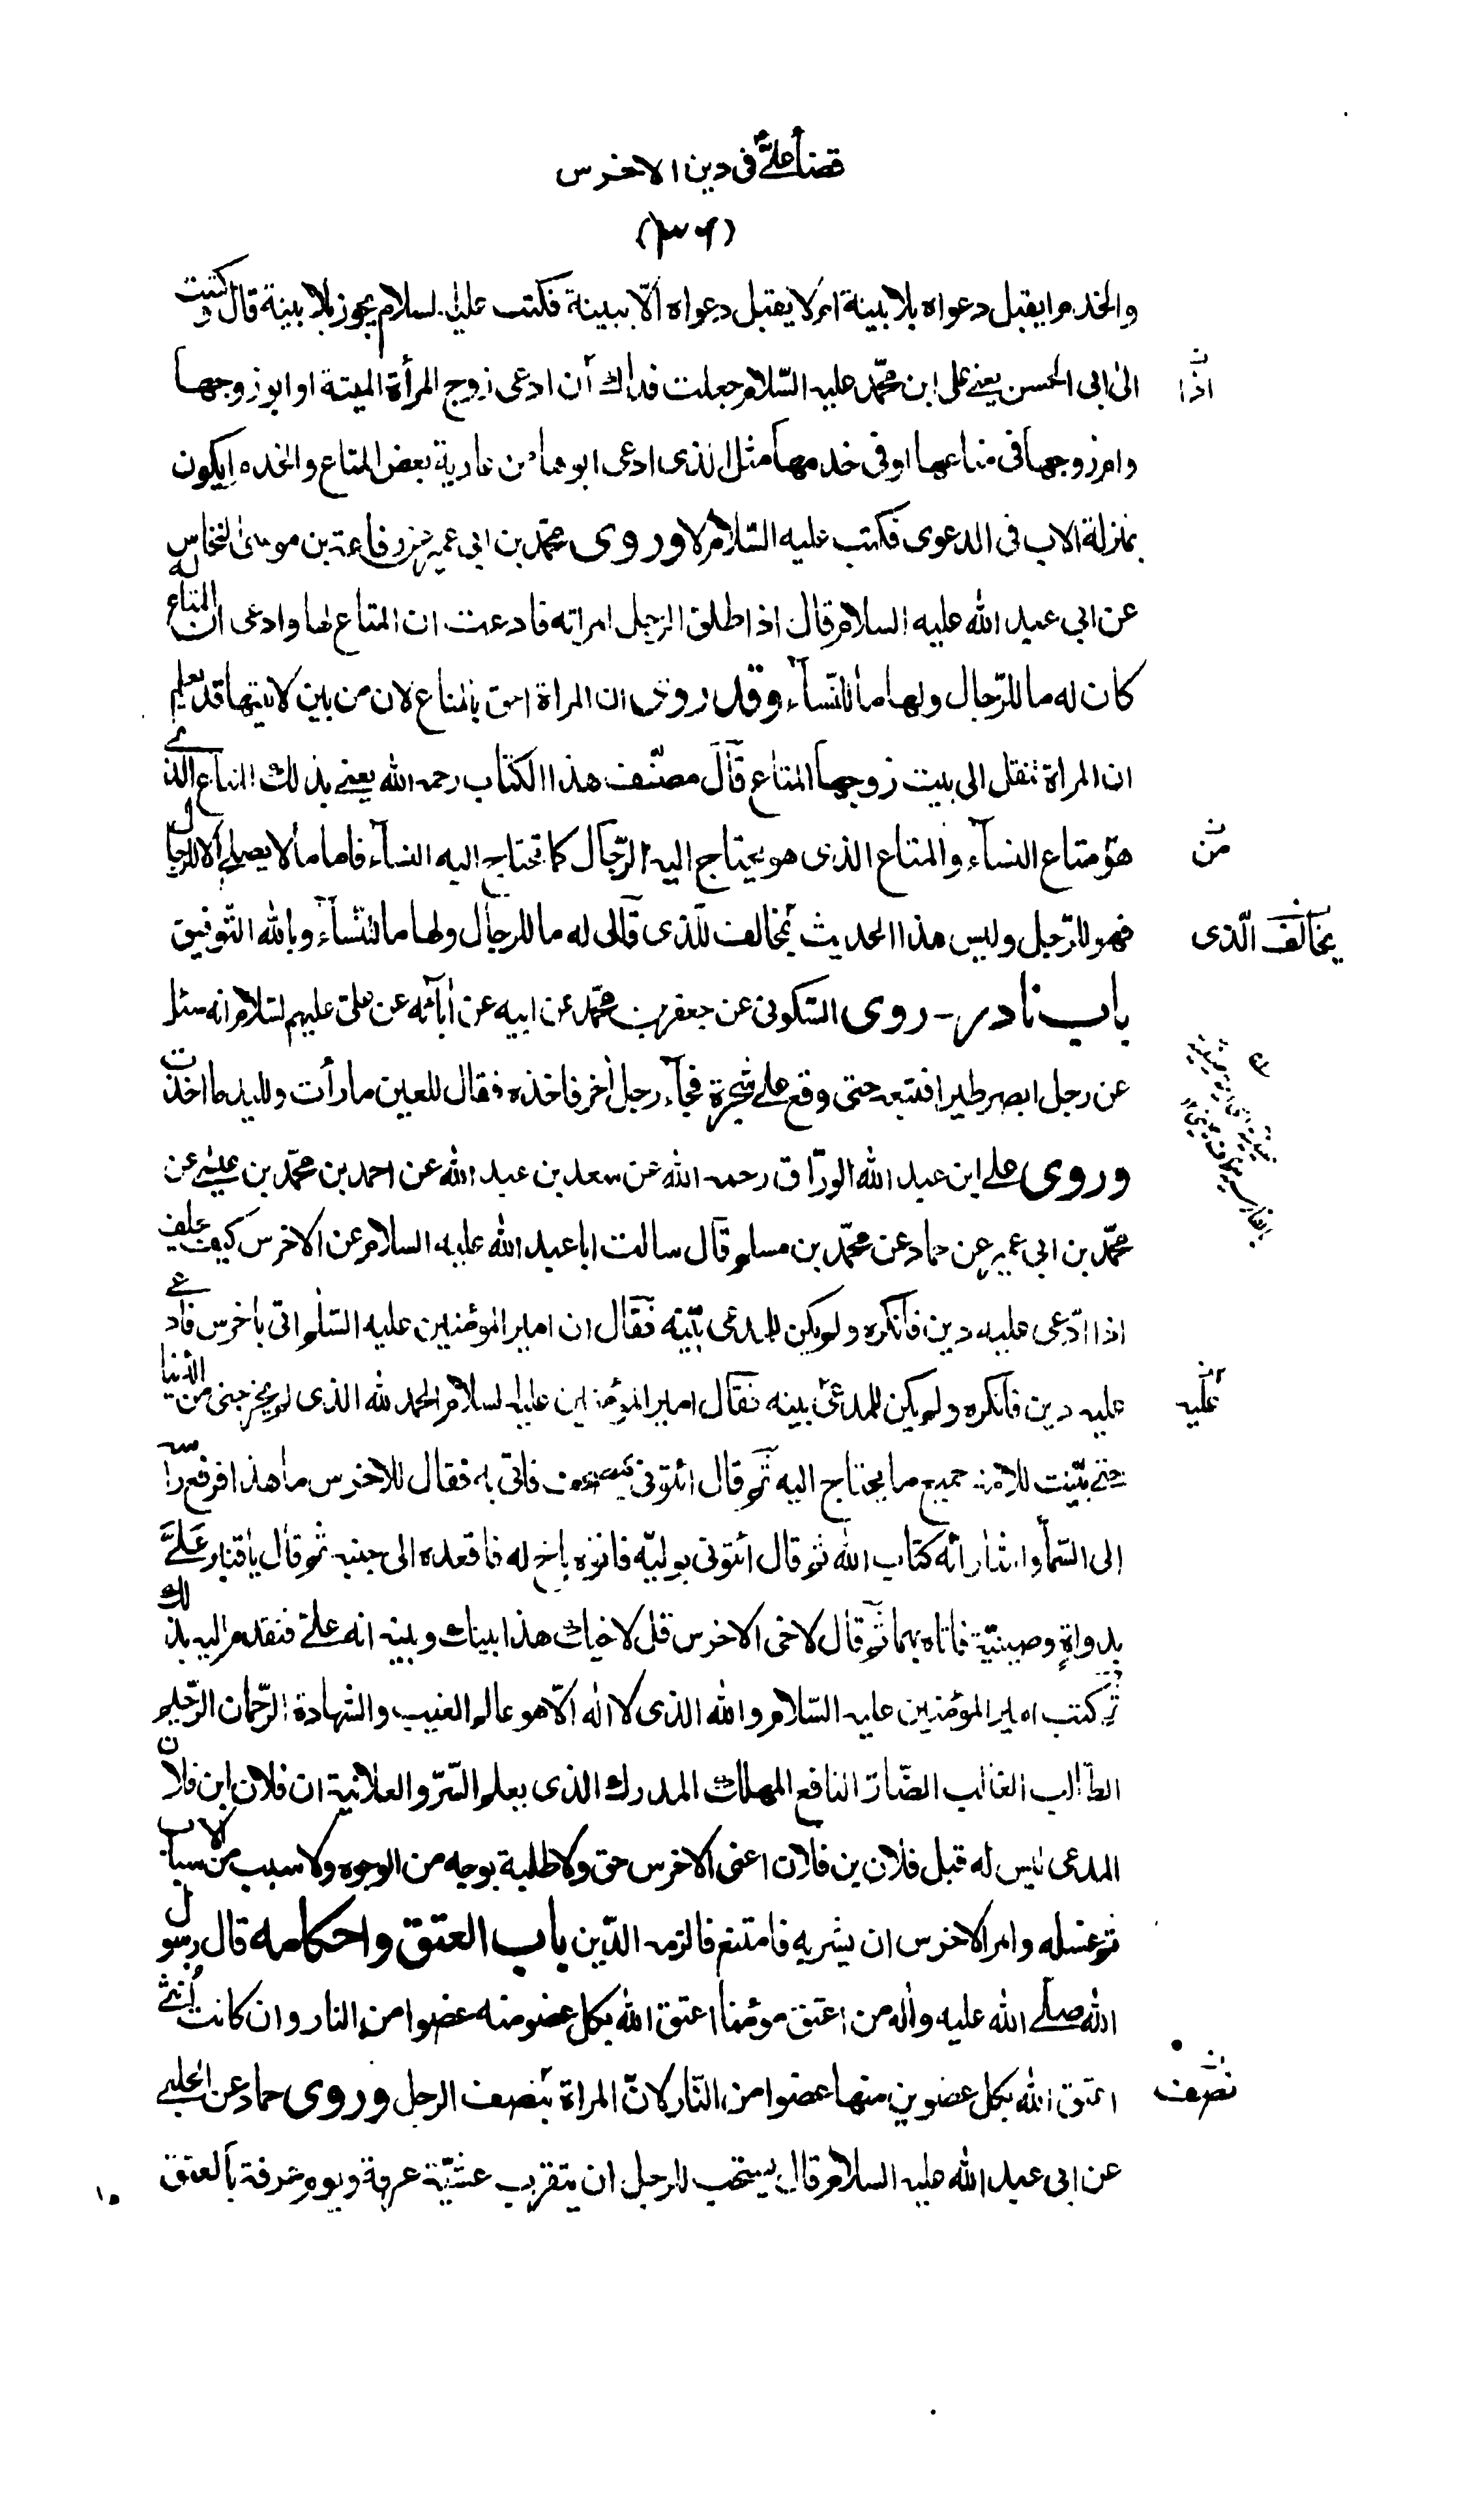 قضا علىؑ فى دين الاخرس
(٣٦)
والخدم ايقبل دعواه بلا بينة ام لا يقبل دعواه الّا ببينة فكتب عليه السلام يجوز بلا بينة قال و كتبت
الى ابى الحسن يعنے على ابن محمّد عليه السّلام جعلت فداك ان ادعى زوج المرأة الميتة او ابو زوجها
وام زوجها فى متاعها او فى خدمها مثل الذى ادعى ابوها من عارية بعض المتاع والخدم ايكون
بمنزلة الاب فى الدعوى فكتب عليه السّلام لا وروى محمّد بن ابى عمير عن رفاعة بن موسى النخاس
عن ابى عبد الله عليه السلام قال اذا طلق الرجل امراته فادعت ان المتاع لها وادعى ان المتاع له
كان له ما للرّجال ولها ما للنّسآء وقد روى ان المراة احق بالمتاع لان من بين لابيتها قد يعلم
ان المراة تنقل الى بيت زوجها المتاع قال مصنّف هذا الكتاب رحمه الله يعنے بذلك المتاع الذى
هو متاع النسآء والمتاع الذى هو يحتاج اليه الرّجال كما تحتاج اليه النسآء فاما ما لا يصلح الا للرجال
فهو للرّجل وليس هذا الحديث بمخالف للذى قال له ما للرجال ولها ما للنّسآء وبالله التّوفيق
باب نادر - روى السّكونى عن جعفر بن محمّد عن ابيه عن اٰبائه عن على عليهم السّلام انه سئل
عن رجل ابصر طيرا فتبعه حتى وقع علے شجرة فجآء رجل اٰخر فاخذه فقال للعين ما رأت ولليد ما اخذت
وروى علے ابن عبد الله الورّاق رحمه الله عن سعد بن عبد الله عن احمد بن محمّد بن عيسٰے عن
محمّد بن ابى عمير عن حماد عن محمّد بن مسلم قال سالت ابا عبد الله عليه السلام عن الاخرس كيف يحلف
اذا ادّعى عليه دين فانكره ولم يكن للمدعى بيّنه فقال ان امير المؤمنين عليه السّلم اتى باخرس فادعى
عليه دين فانكره ولم يكن للمدعى بينه فقال امير المؤمنين عليه السلام الحمد لله الذى لم يخرجنى من الدّنيا
حتے بيّنت للامة جميع ما يحتاج اليه ثم قال ائتونى بمصحف فاتى به فقال للاخرس ما هذا فرفع راسه
الى السّمآ واشار انّه كتاب الله ثم قال ائتونى بوليّه فاتوه باخ له فاقعده الى جنبه ثم قال يا قنبر عَلَےَّ
بدواةٍ وصينيّة فاتاه بهما ثم قال لاخى الاخرس قل لاخيك هذا بينك وبينه انه على فتقدم اليه بذلك
ثم كتب امير المؤمنين عليه السّلام والله الذى لا اله الّا هو عالم الغيب والشّهادة الرّحمان الرّحيم
الطّالب الغالب الضّارّ النافع المهلك المدرك الذى يعلم السّرّ والعلانية ان فلان ابن فلان
المدعى ليس له قبل فلان بن فلان اعنى الاخرس حق ولا طلبة بوجه من الوجوه ولا سبب من الاسباب
ثم غسله وامر الاخرس ان يشربه فامتنع فالزمه الدّين باب العتق واحكامه قال رسول
الله صلے الله عليه واٰله من اعتق مؤمنا اعتق الله بكل عضو منه عضوا من النار وان كانت اُنثٰے
اعتق الله بكل عضوين منها عضوا من النّار لانّ المراة بنصف الرجل وروى حماد عن الحلبے
عن ابى عبد الله عليه السلام قال يستحب للرجل ان يتقرب عشيّة عرفة ويوم عرفة بالعتق
اذا
من
يخالف الّذى
عليه
نصف